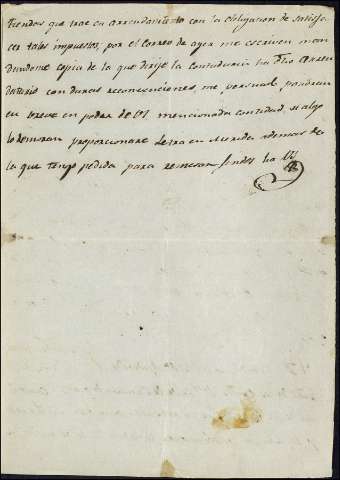 tiendas que trae en arrendamiento con la obligacion de satisfa
cer tales impuestos, por el Correo de ayer me escriven man
dandome copia de la que dirije la Contaduria ha dho Arren
datario con duras reconvenciones, me persuad pondran
en breve en poder de la mencionada cantidad, si algo
lo demoran proporcionare letra en Merida ademas de
la que tengo pedida para remesar fondos ha